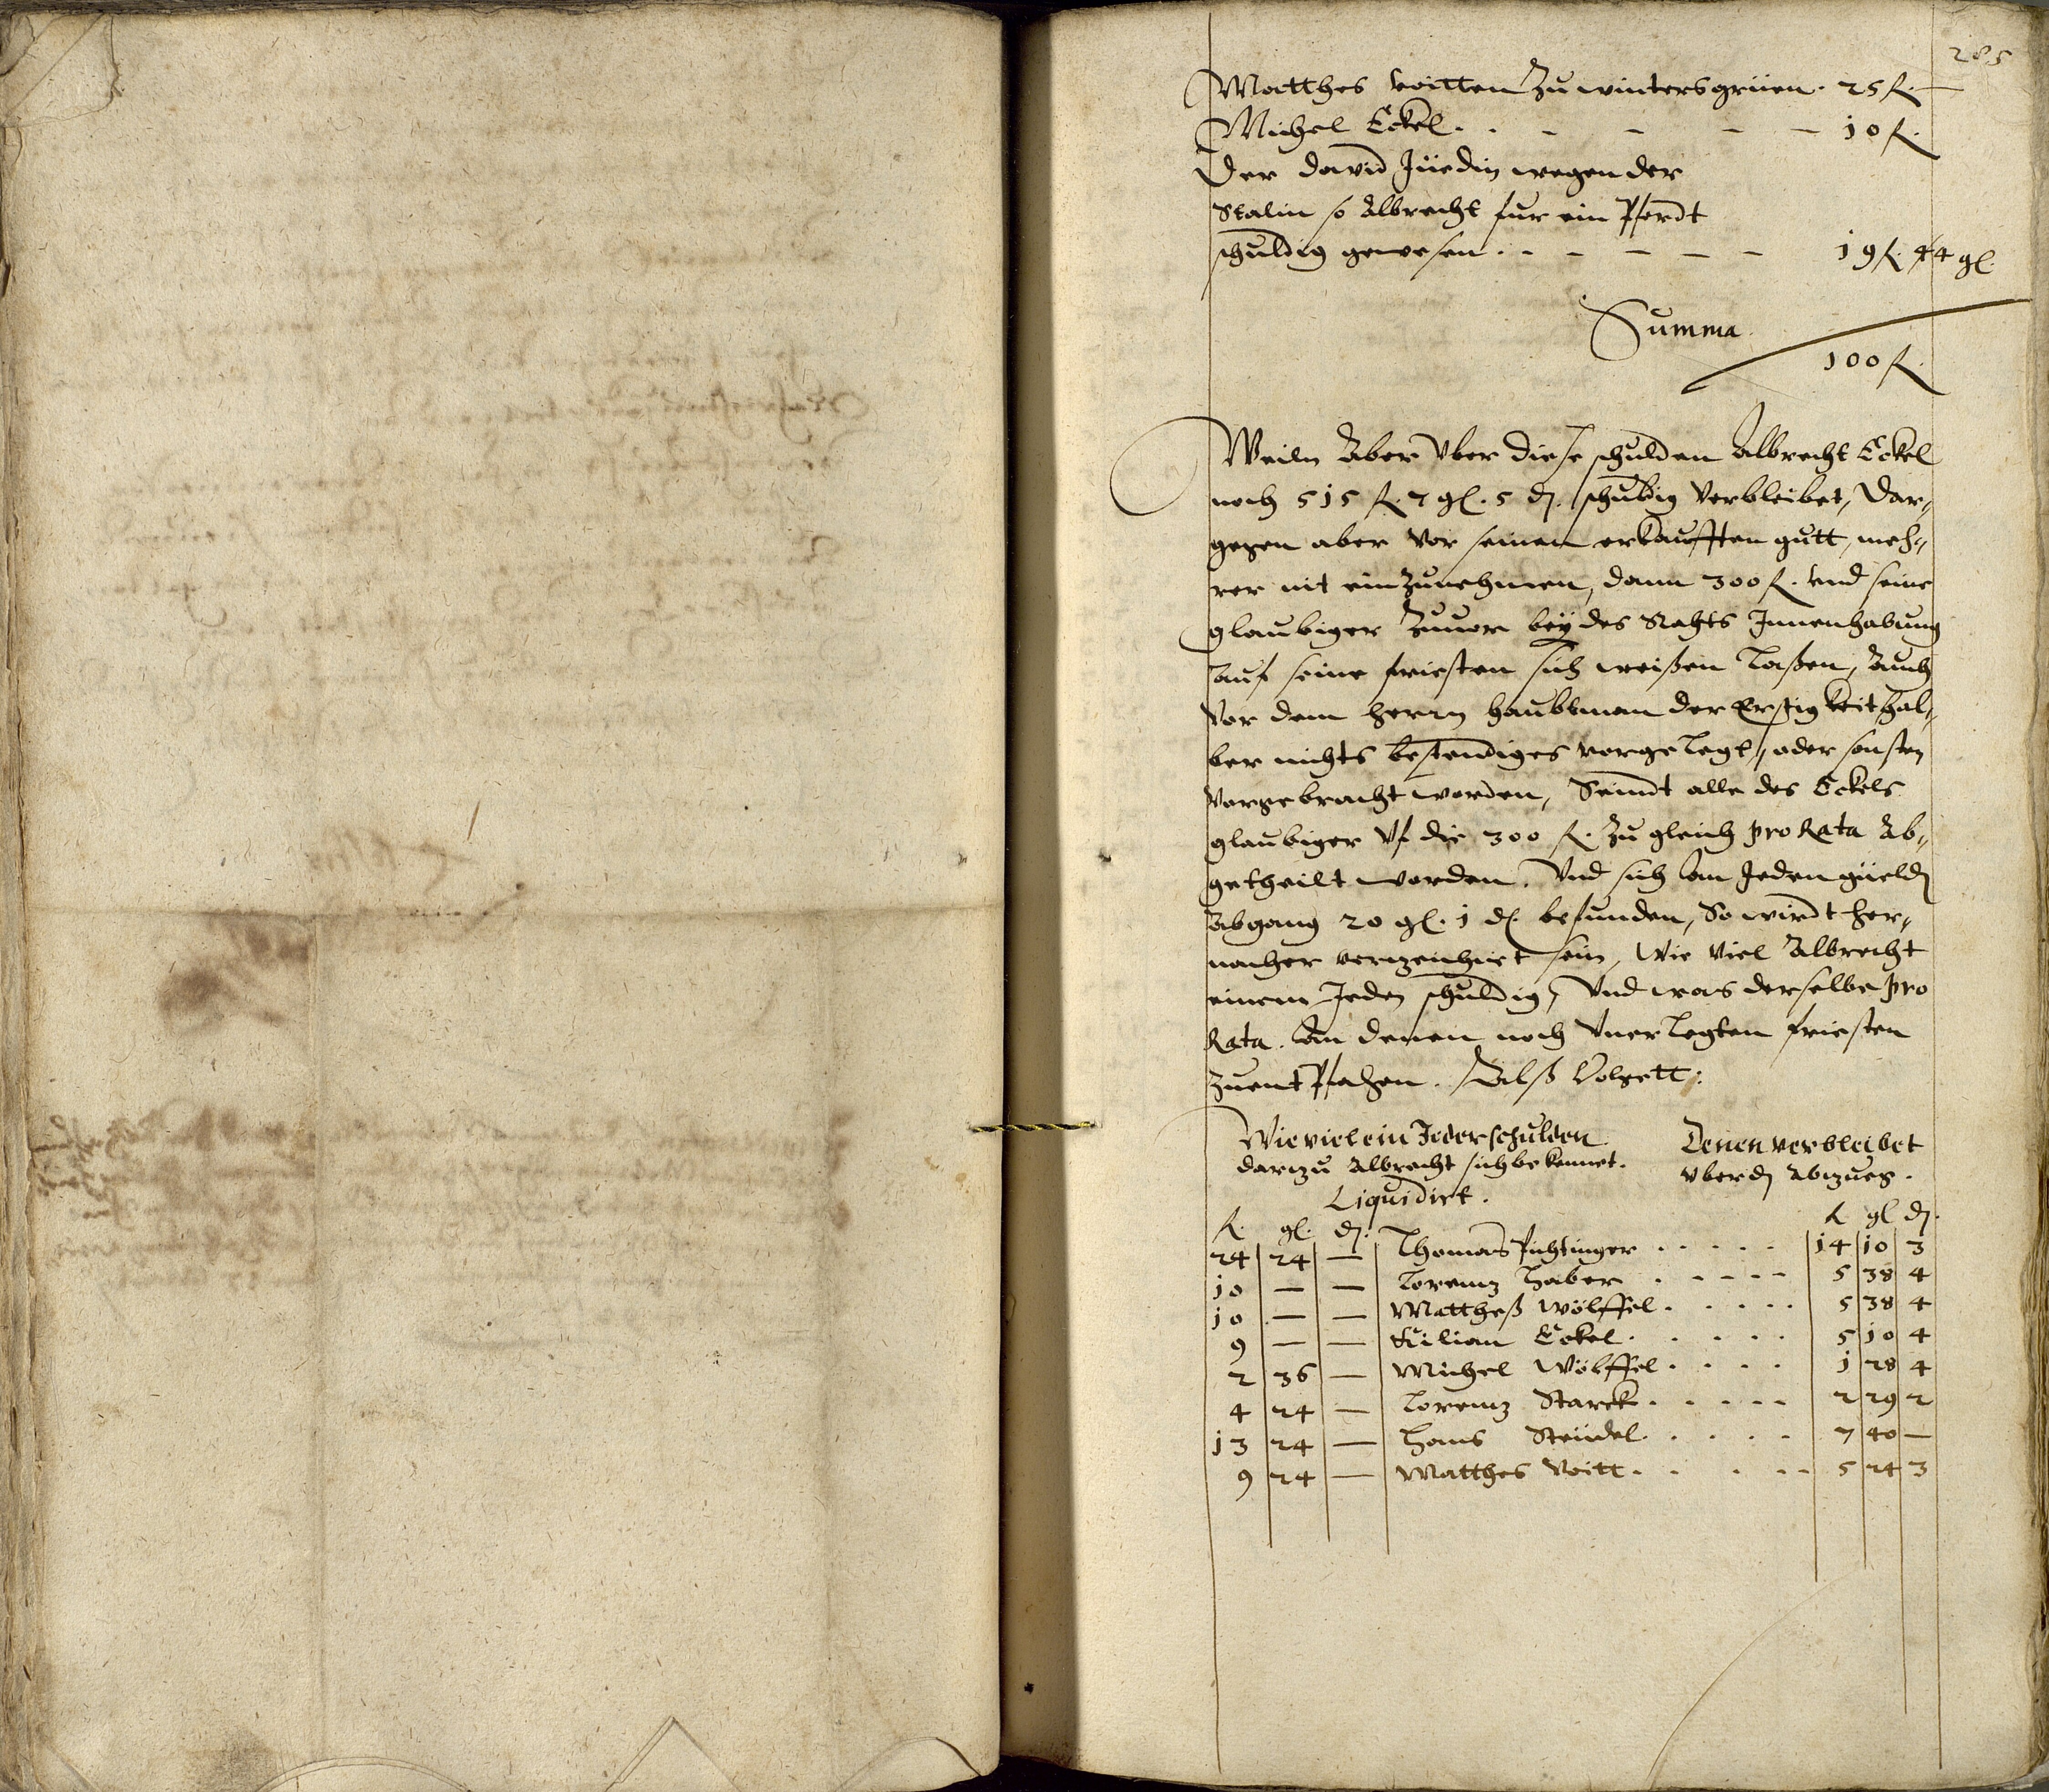 285
Matthes voitten Zu wintersgrüen. 25 fl. —
Michel Eckel. . - - - - 10 fl.
Der david Jüedin wegen der
Stalin so Albrecht fur ein Pferdt
schuldig gewesen. . - - - - 19 fl. 44 gl.
Summa
100 fl.
Weiln Aber Vber diese schulden Albrecht Eckel
noch 515 fl. 2 gl. 5 d. schuldig Verbleibet, Dar„
gegen aber Vor seinen erkaufften gutt, meh„
rer nit einzunehmen, dann 300 fl. vnd seine
glaubiger Zuuor bey des Rahts Innenhabung
auf seine friesten sich weißen laßen, Auch
Vor dem herrn haubtman der Erstigkeit hal„
ber nichts bestendiges vorgelegt, oder sonsten
Vorgebracht worden, Seindt alle des Eckels
glaubiger Vf die 300 fl. Zu gleich pro Rata Ab„
getheilt worden. Vnd sich an Jeden güeld
Abgang 20 gl. 1 d. befunden, So wirdt her„
nacher verzeichnet sein, Wie Viel Albrecht
einem Jeden schuldig, Vnd was derselbe pro
Rata. an denen noch Vnerlegten friesten
zuentPfahen. Alß Volgett:
Wie viel ein Jeder schulden
darzu Albrecht sich bekennet.
Liquidirt.
Denen verbleibet
vber d Abzueg.
fl. gl. d. fl. gl d.
24 24 — Thomas Puchtinger . . . . . 14 10 3
10 — — Lorentz haber . . . . . 5 38 4
10 — — Mattheß Wölffel . . . . . 5 38 4
9 — — Kilian Eckel . . . . . 5 10 4
2 36 — Michel Wölffel . . . . 1 28 4
4 24 — Lorentz Starck . . . . . 2 29 2
13 24 — Hans Steudel . . . . . 7 40 —
9 24 — Matthes Voitt . . . . . 5 24 3